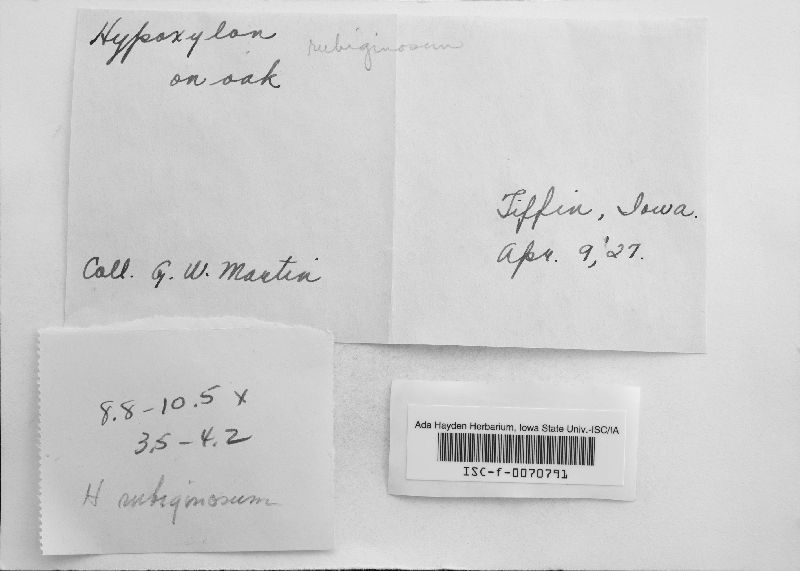 Hypoxylon rubiginosum
on oak
Tiffin, Iowa.
Apr. 9, '27.
Coll. G. W. Martin
8.8-10.5 x
3.5-4.2
H rubiginosum
Ada Hayden Herbarium, Iowa State Univ.-ISC/IA
ISC-f-0070791